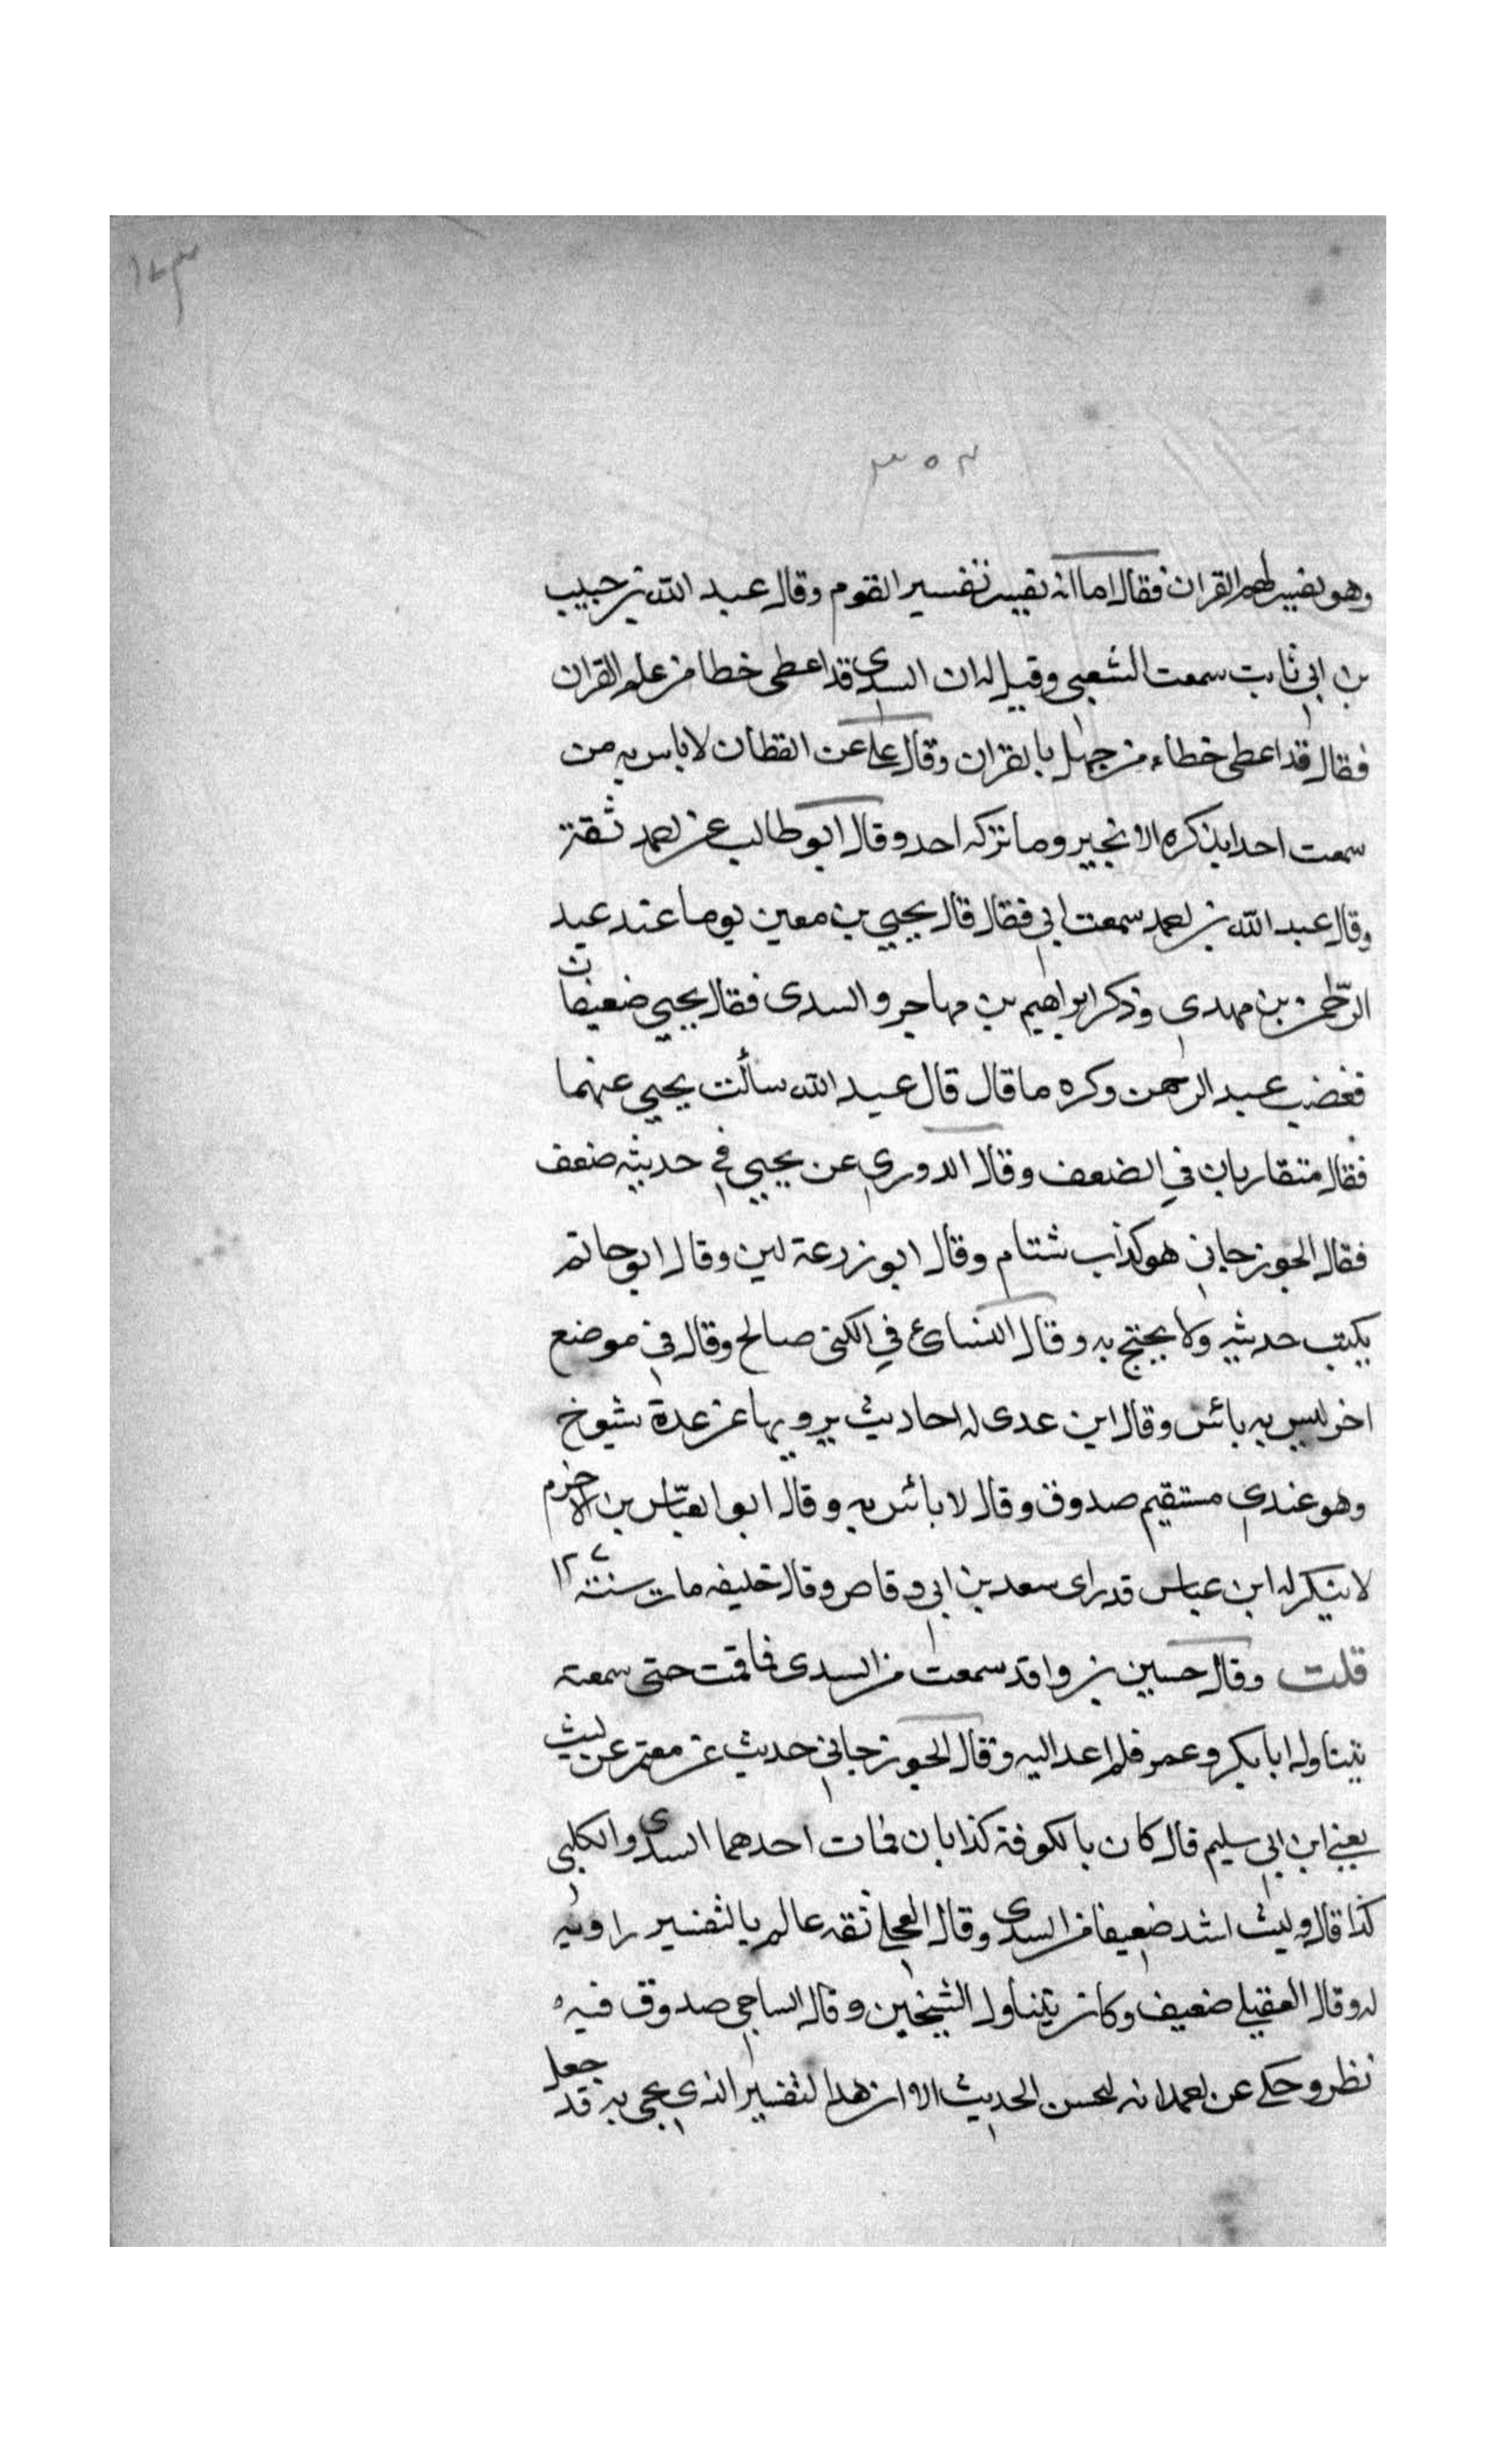 ١٧٣
٣٥٣
وهو يفسر لهم القران فقال اما انه يفسر تفسير القوم وقال عبد الله بن حبيب
بن ابي ثابت سمعت الشعبي وقيل له ان السدى قد اعطى خطا من علم القران
فقال قد اعطى خطاء من جهل بالقران وقال على عن القطان لا باس به من
سمعت احدا يذكره الا بخير وما تركه احد وقال ابو طالب عن احمد ثقة
وقال عبد الله بن احمد سمعت ابي فقال قال يحيى بن معين يوما عند عبد
الرحمن بن مهدي وذكر ابراهيم بن مهاجر والسدى فقال يحيى ضعيفان
فغضب عبد الرحمن وكره ما قال قال عبد الله سألت يحيى عنهما
فقال متقاربان في الضعف وقال الدوري عن يحيى في حديثه ضعف
فقال الجوزجاني هو كذاب شتام وقال ابو زرعة لين وقال ابو حاتم
يكتب حديثه ولا يحتج به وقال النسائ في الكنى صالح وقال في موضع
اخر ليس به بائس وقال ابن عدى له احاديث يرويها عن عدة شيوخ
وهو عندي مستقيم صدوق وقال لا بائس به وقال ابو العباس بن الاخرم
لا ينكر له ابن عباس قد راى سعد بن ابي وقاص وقال خليفه مات سنة ١٢٧
قلت وقال حسين بن واقد سمعت من السدى فاقمت حتى سمعته
يتناول ابا بكر وعمر فلم اعد اليه وقال الجوزجاني حديث عن معتمر عن ليث
يعنى ابن ابي سليم قال كان بالكوفة كذابان فمات احدهما السدى والكلبي
كذا قال وليث اشد ضعيفا من السدى وقال العجلي ثقه عالم بالتفسير راويه
له وقال العقيلي ضعيف وكان يتناول الشيخين وقال الساجي صدوق فيه
نظر وحكى عن احمد انه ليحسن الحديث الا ان هذا التفسير الذي يجى به قد جعل